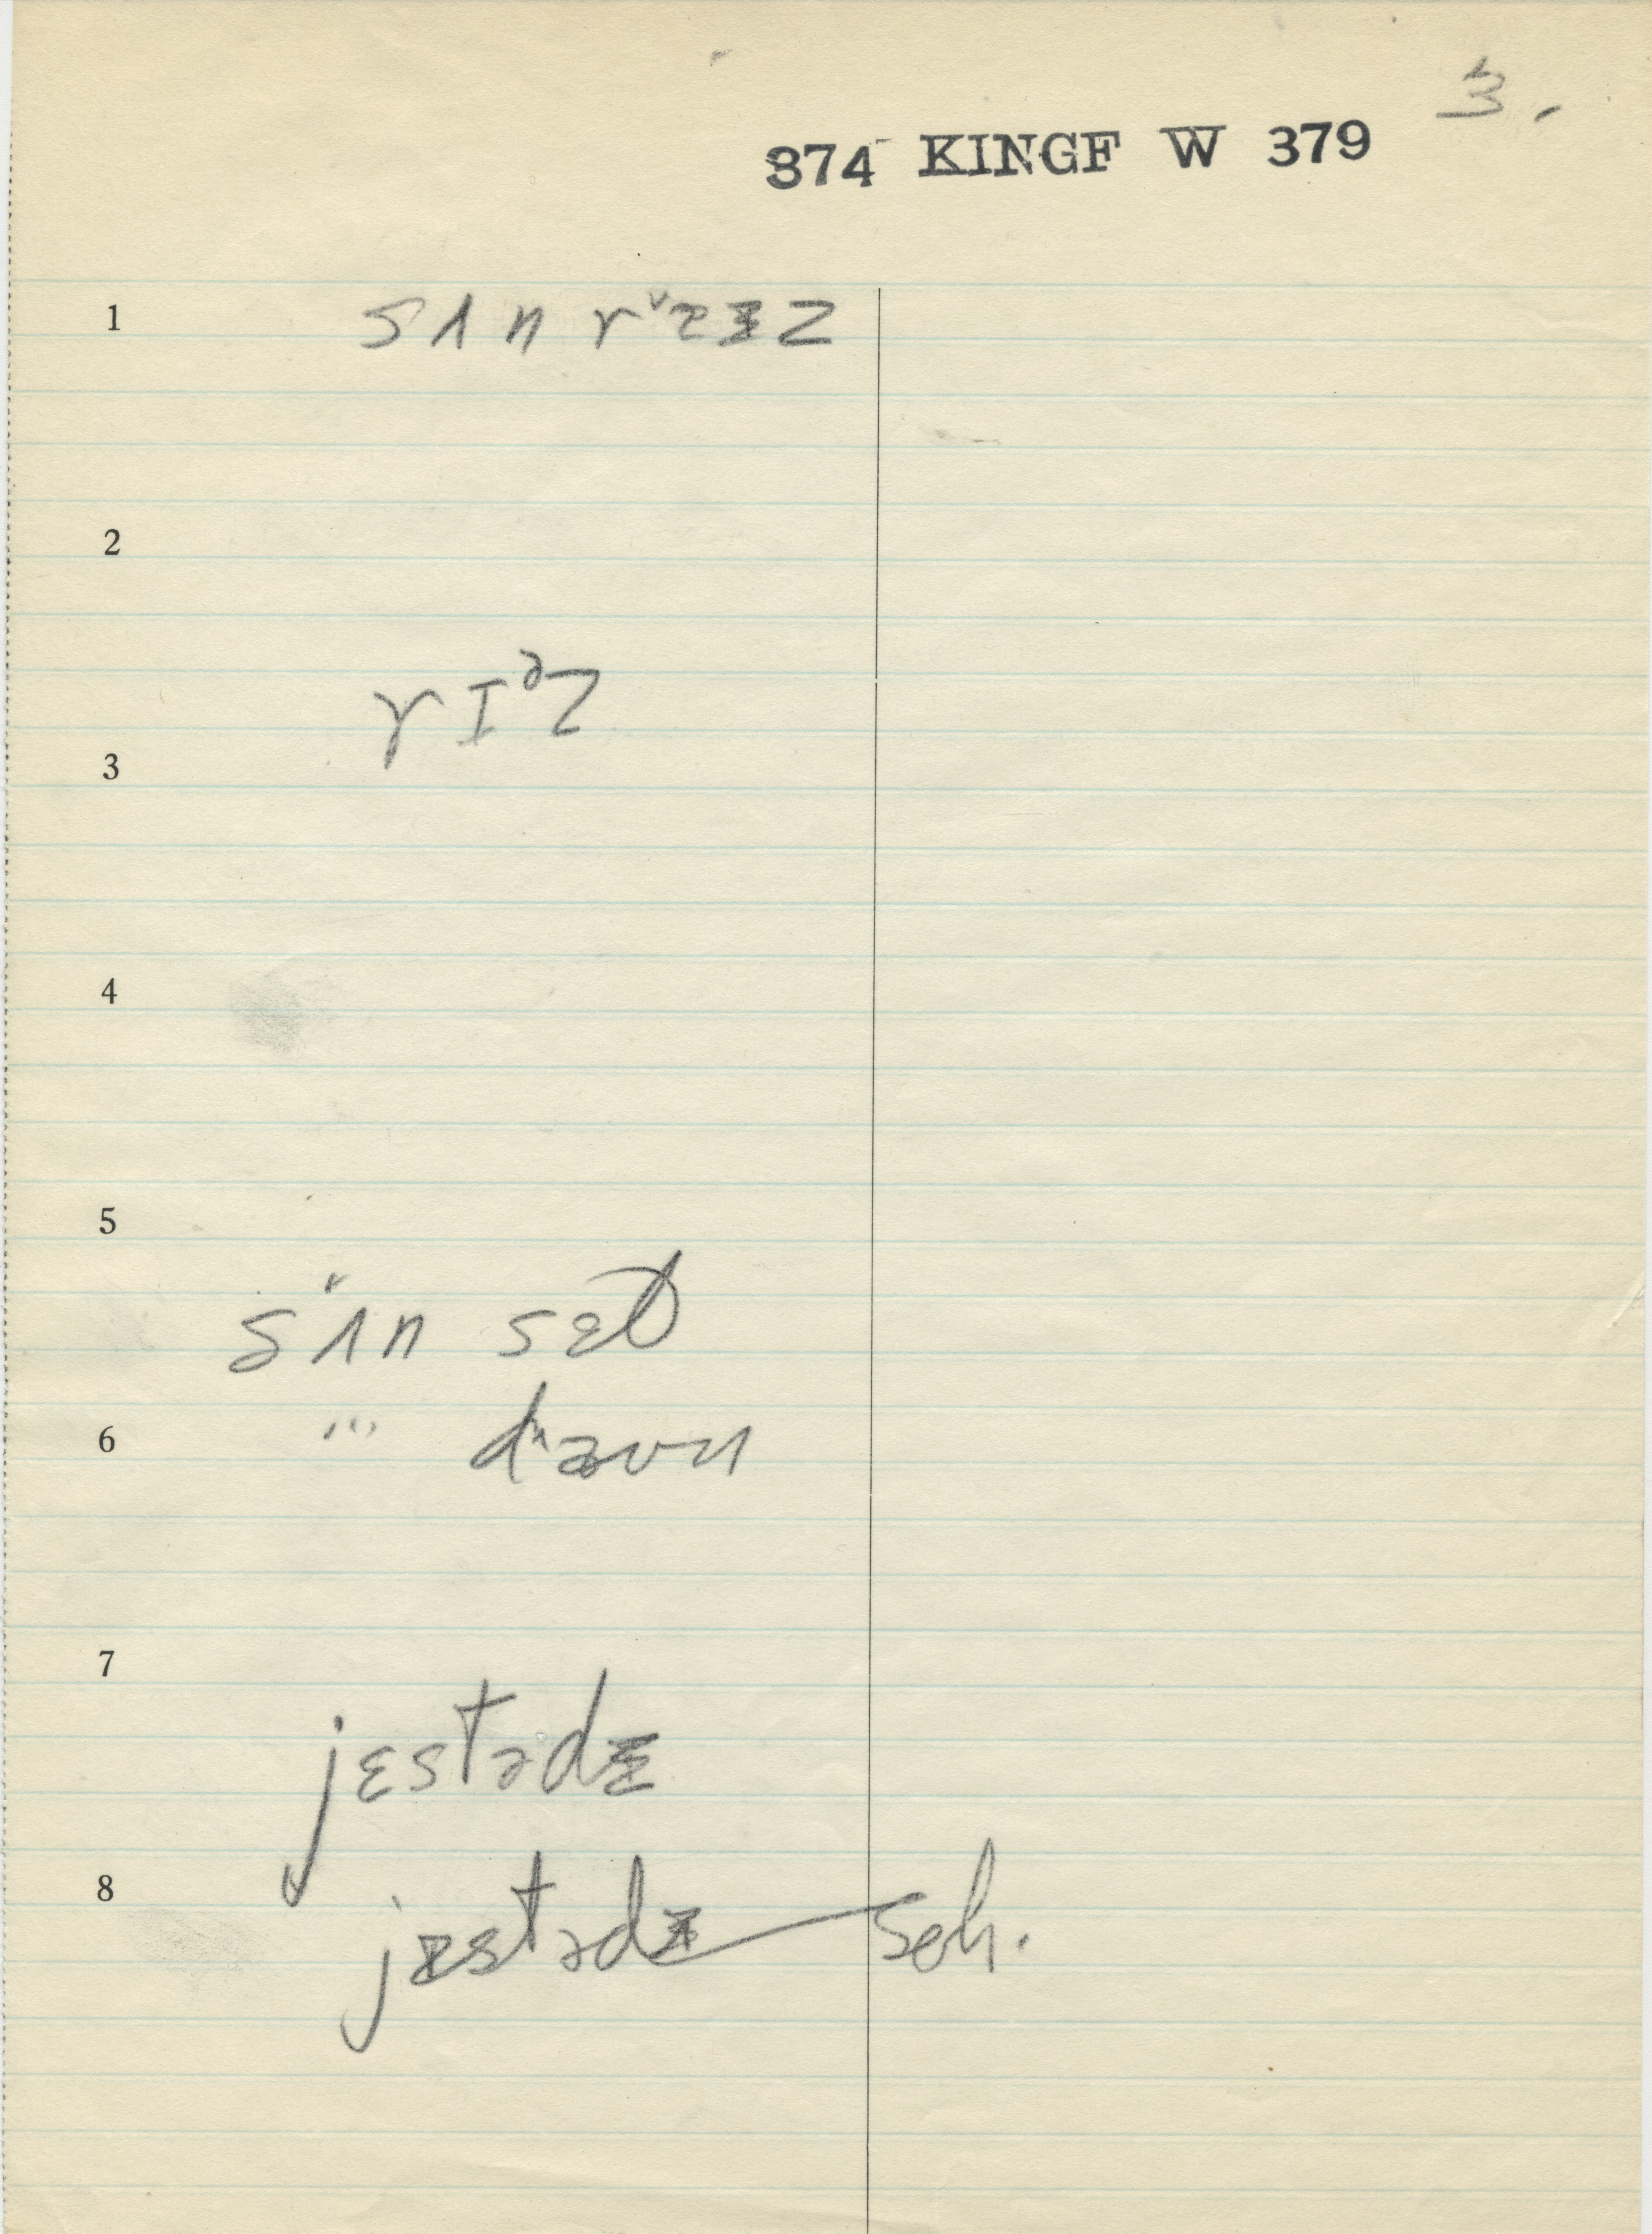 3.
374 KINGF W 379
1 sʌn rᵛɐɪz
2
3 rɪᵊz
4
5
sᵛʌn sɛt
6 " daʊn
7
jɛstədɨ
8
jɛstədɨ sch.